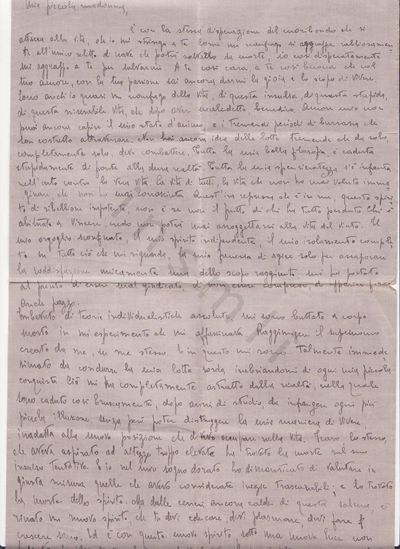 Mia piccola madonna,
È con la stessa disperazione del moribondo che si
alla vita, che io mi stringo a te come un naufrago si aggrappa rabbiosamen
te all'unico relitto di nave che potrà salvarlo da morte, io così disperatamente
mi aggrappo a te per salvarmi. A te così cara, a te così buona che col
tuo amore, con la tua passione sai ancora darmi la gioia e lo scopo di vivere.
Sono anch'io quasi un naufrago della vita, di questa insulsa, di questa stupida,
di questa miserabile vita, che dopo aver maledetto benedico. Amor mio non
puoi ancora capire il mio stato d'animo, e i tremendi periodi di burrasca che
son costretto attraversare. che hai ancora idea delle lotte tremende che da solo,
completamente solo, devo combattere. Tutta la mia bella filosofia è caduta
stupidamente di fronte alla dura realtà. Tutta la mia spensieratezza s'è infranta
nell'urto contro la vera vita, la vita di tutti, la vita che non ho mai voluto immag
ginare che non ho mai conosciuta. Quest' che è in me, questo spiri
to di ribellione impotente non è se non il frutto di chi ha tutto perduto, chi è
abituato a vincere credo non potrà mai assoggettarsi alla vita del vinto. Il
mio orgoglio sconfinato, il mio spirito indipendente, il mio isolamento comple
to in tutto ciò che mi riguarda, la mia di agire solo per assaporare
la soddisfazione unicamente mia dello scopo raggiunto mi ha portato
al punto di esser mal giudicato, di non esser compreso, di apparire
anche pazzo.
Imbevuto di teorie individualistiche assolute, mi sono buttato a corpo
morto in un esperimento che mi affascinava. Raggiungere il superuomo
creato da me, in me stesso. E in questo mio sogno talmente immede
simato da condurre la mia lotta sorda inebriandomi di ogni mia piccola
conquista. Ciò mi ha completamente astratto dalla realtà, nella quale
sono caduto così bruscamente, dopo anni di studio, da infrangere ogni più
piccola illusione senza però poter distruggere la mia maniera di vivere
inadatta alla nuova posizione che nella vita. Icaro lo stesso,
che aveva aspirato ad altezze troppo elevate ha trovato la morte nel suo
tentativo. E io nel mio sogno dorato ho dimenticato di valutare in
giusta misura quelle che avevo considerate inezie trascurabili, e ho trovato
la morte dello spirito. Ma dalle ceneri ancora calde di questa salma, è
rinato un nuovo spirito, che tu devi educare, devi plasmare, devi fare
crescere sano. Ed è con questo nuovo spirito sotto una nuova luce non